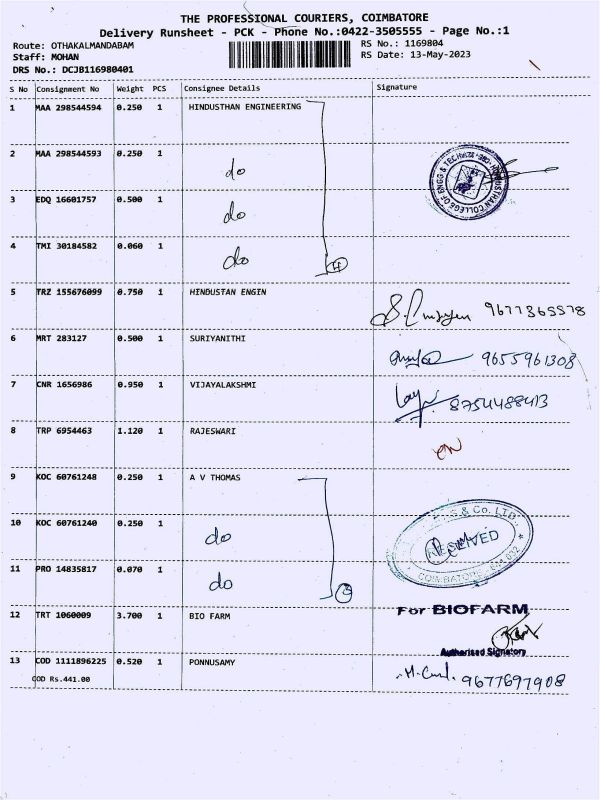 THE PROFESSIONAL COURIERS, COIMBATORE
Delivery Runsheet - PCK - Phone No.:0422-3505555 - Page No.:1
Route: OTHAKALMANDABAM
RS No.: 1169804
Staff: MOHAN
RS Date: 13-May-2023
DRS No.: DCJB116980401
S No Consignment No Weight PCS Consignee Details Signature
1 MAA 298544594 0.250 1 HINDUSTHAN ENGINEERING
2 MAA 298544593 0.250 1 do
3 EDQ 16601757 0.500 1 do
4 TMI 30184582 0.060 1 do 4
5 TRZ 155676099 0.750 1 HINDUSTAN ENGIN 9677365578
6 MRT 283127 0.500 1 SURIYANITHI 9655961308
7 CNR 1656986 0.950 1 VIJAYALAKSHMI 8754488413
8 TRP 6954463 1.120 1 RAJESWARI
9 KOC 60761248 0.250 1 A V THOMAS
& Co. LTD.
10 KOC 60761240 0.250 1 do RECEIVED
11 PRO 14835817 0.070 1 do
COIMBATORE
12 TRT 1060009 3.700 1 BIO FARM For BIOFARM
Authorised Signatory
13 COD 1111896225 0.520 1 PONNUSAMY 9677697908
COD Rs.441.00